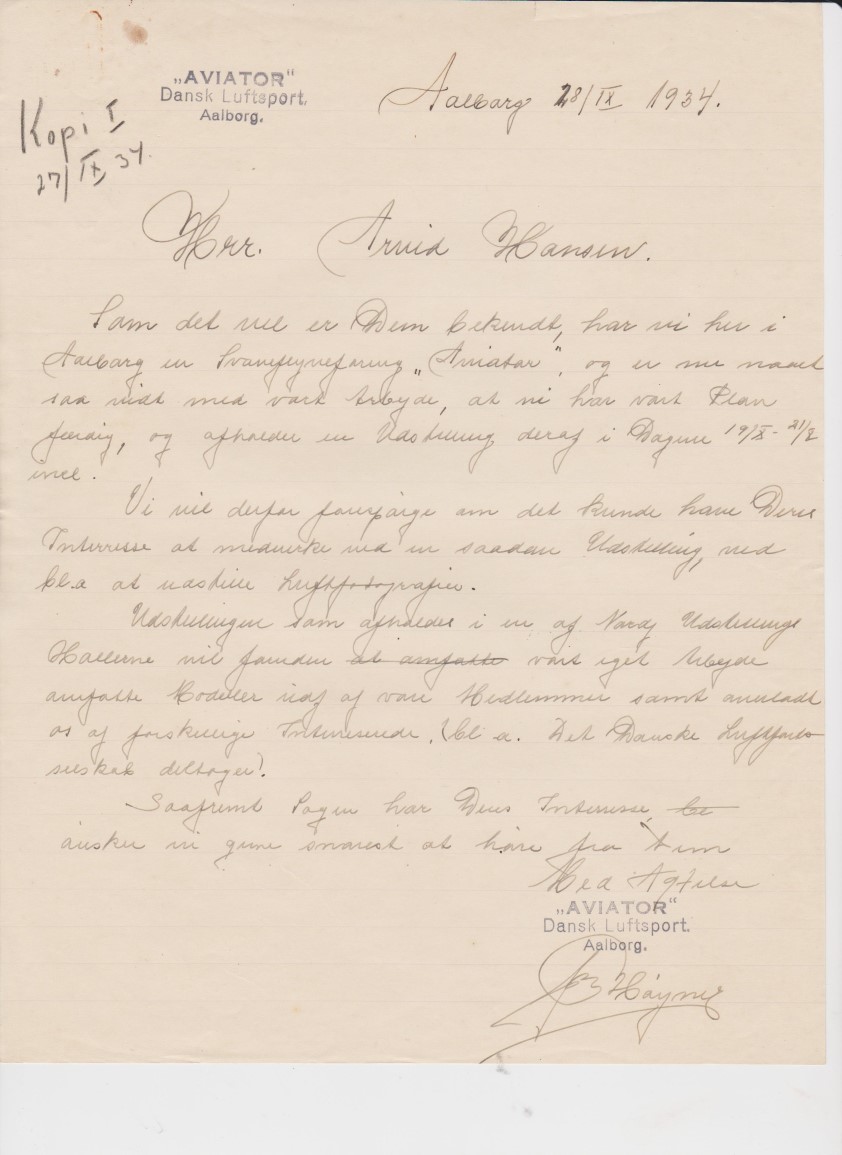 „AVIATOR“
Dansk Luftsport.
Aalborg.
Aalborg 28/IX 1934.
Kopi I
27/IX 34.
Hrr. Arvid Hansen.
Som det vel er Dem bekendt, har vi her i
Aalborg en Svæveflyveforening „Aviator“, og er nu naaet
saa vidt med vort Arbejde, at vi har vort Plan
færdig, og afholder en Udstilling deraf i Dagene 19/X - 21/X
incl.
Vi vil derfor forespørge om det kunde have Deres
Interresse at medvirke ved en saadan Udstilling, ved
bl.a at udstille Luftfotografier.
Udstillingen som afholdes i en af Nordj Udstillings
Hallerne vil foruden at omfatte vort eget Arbejde
omfatte Modeller udf af vore Medlemmer samt anmodet
os af forskellige Interesserede, (bl a. Det Danske Luftfarts
selskab deltager).
Saafremt Sagen har Deres Interresse,
ønsker vi gerne snarest at høre fra Dem
Med Agtelse
„AVIATOR“
Dansk Luftsport.
Aalborg.